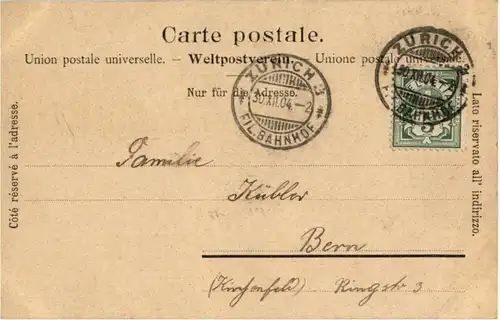 Carte postale.
Union postale universelle. — Weltpostverein. — Unione postale universale.
Nur für die Adresse.
ZÜRICH 3
30.XII.04.–2
FIL. BAHNHOF
ZÜRICH 3
30.XII.04.–2
FIL. BAHNHOF
5
Côté réservé à l'adresse.
Lato riservato all' indirizzo.
Familie
Kübler
Bern
(Kirchenfeld) Ringstr 3